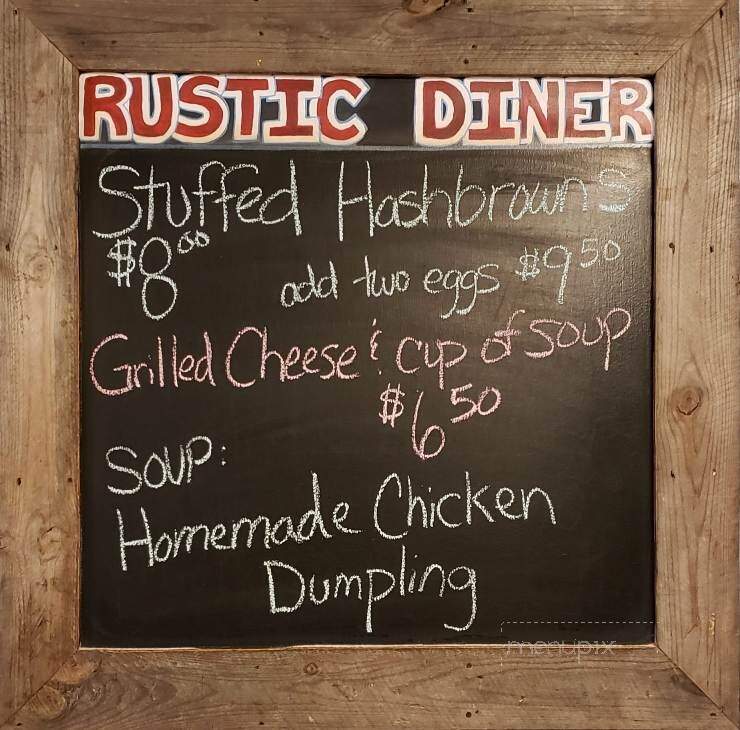 RUSTIC DINER
Stuffed Hashbrowns
$8.00
add two eggs $9.50
Grilled Cheese & cup of soup
$6.50
SOUP:
Homemade Chicken
Dumpling
menupix